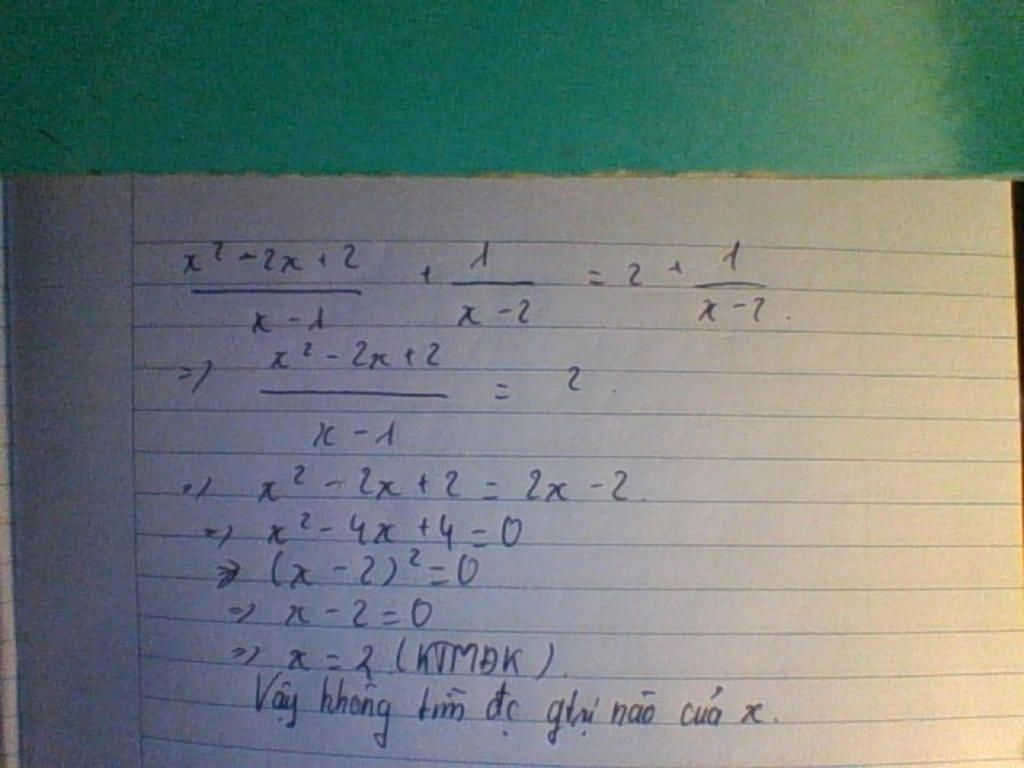 x² - 2x + 2 / x - 1 + 1 / x - 2 = 2 + 1 / x - 2.
=> x² - 2x + 2 / x - 1 = 2.
=> x² - 2x + 2 = 2x - 2.
=> x² - 4x + 4 = 0
=> (x - 2)² = 0
=> x - 2 = 0
=> x = 2 (KTMĐK).
Vậy không tìm đc gtrị nào của x.